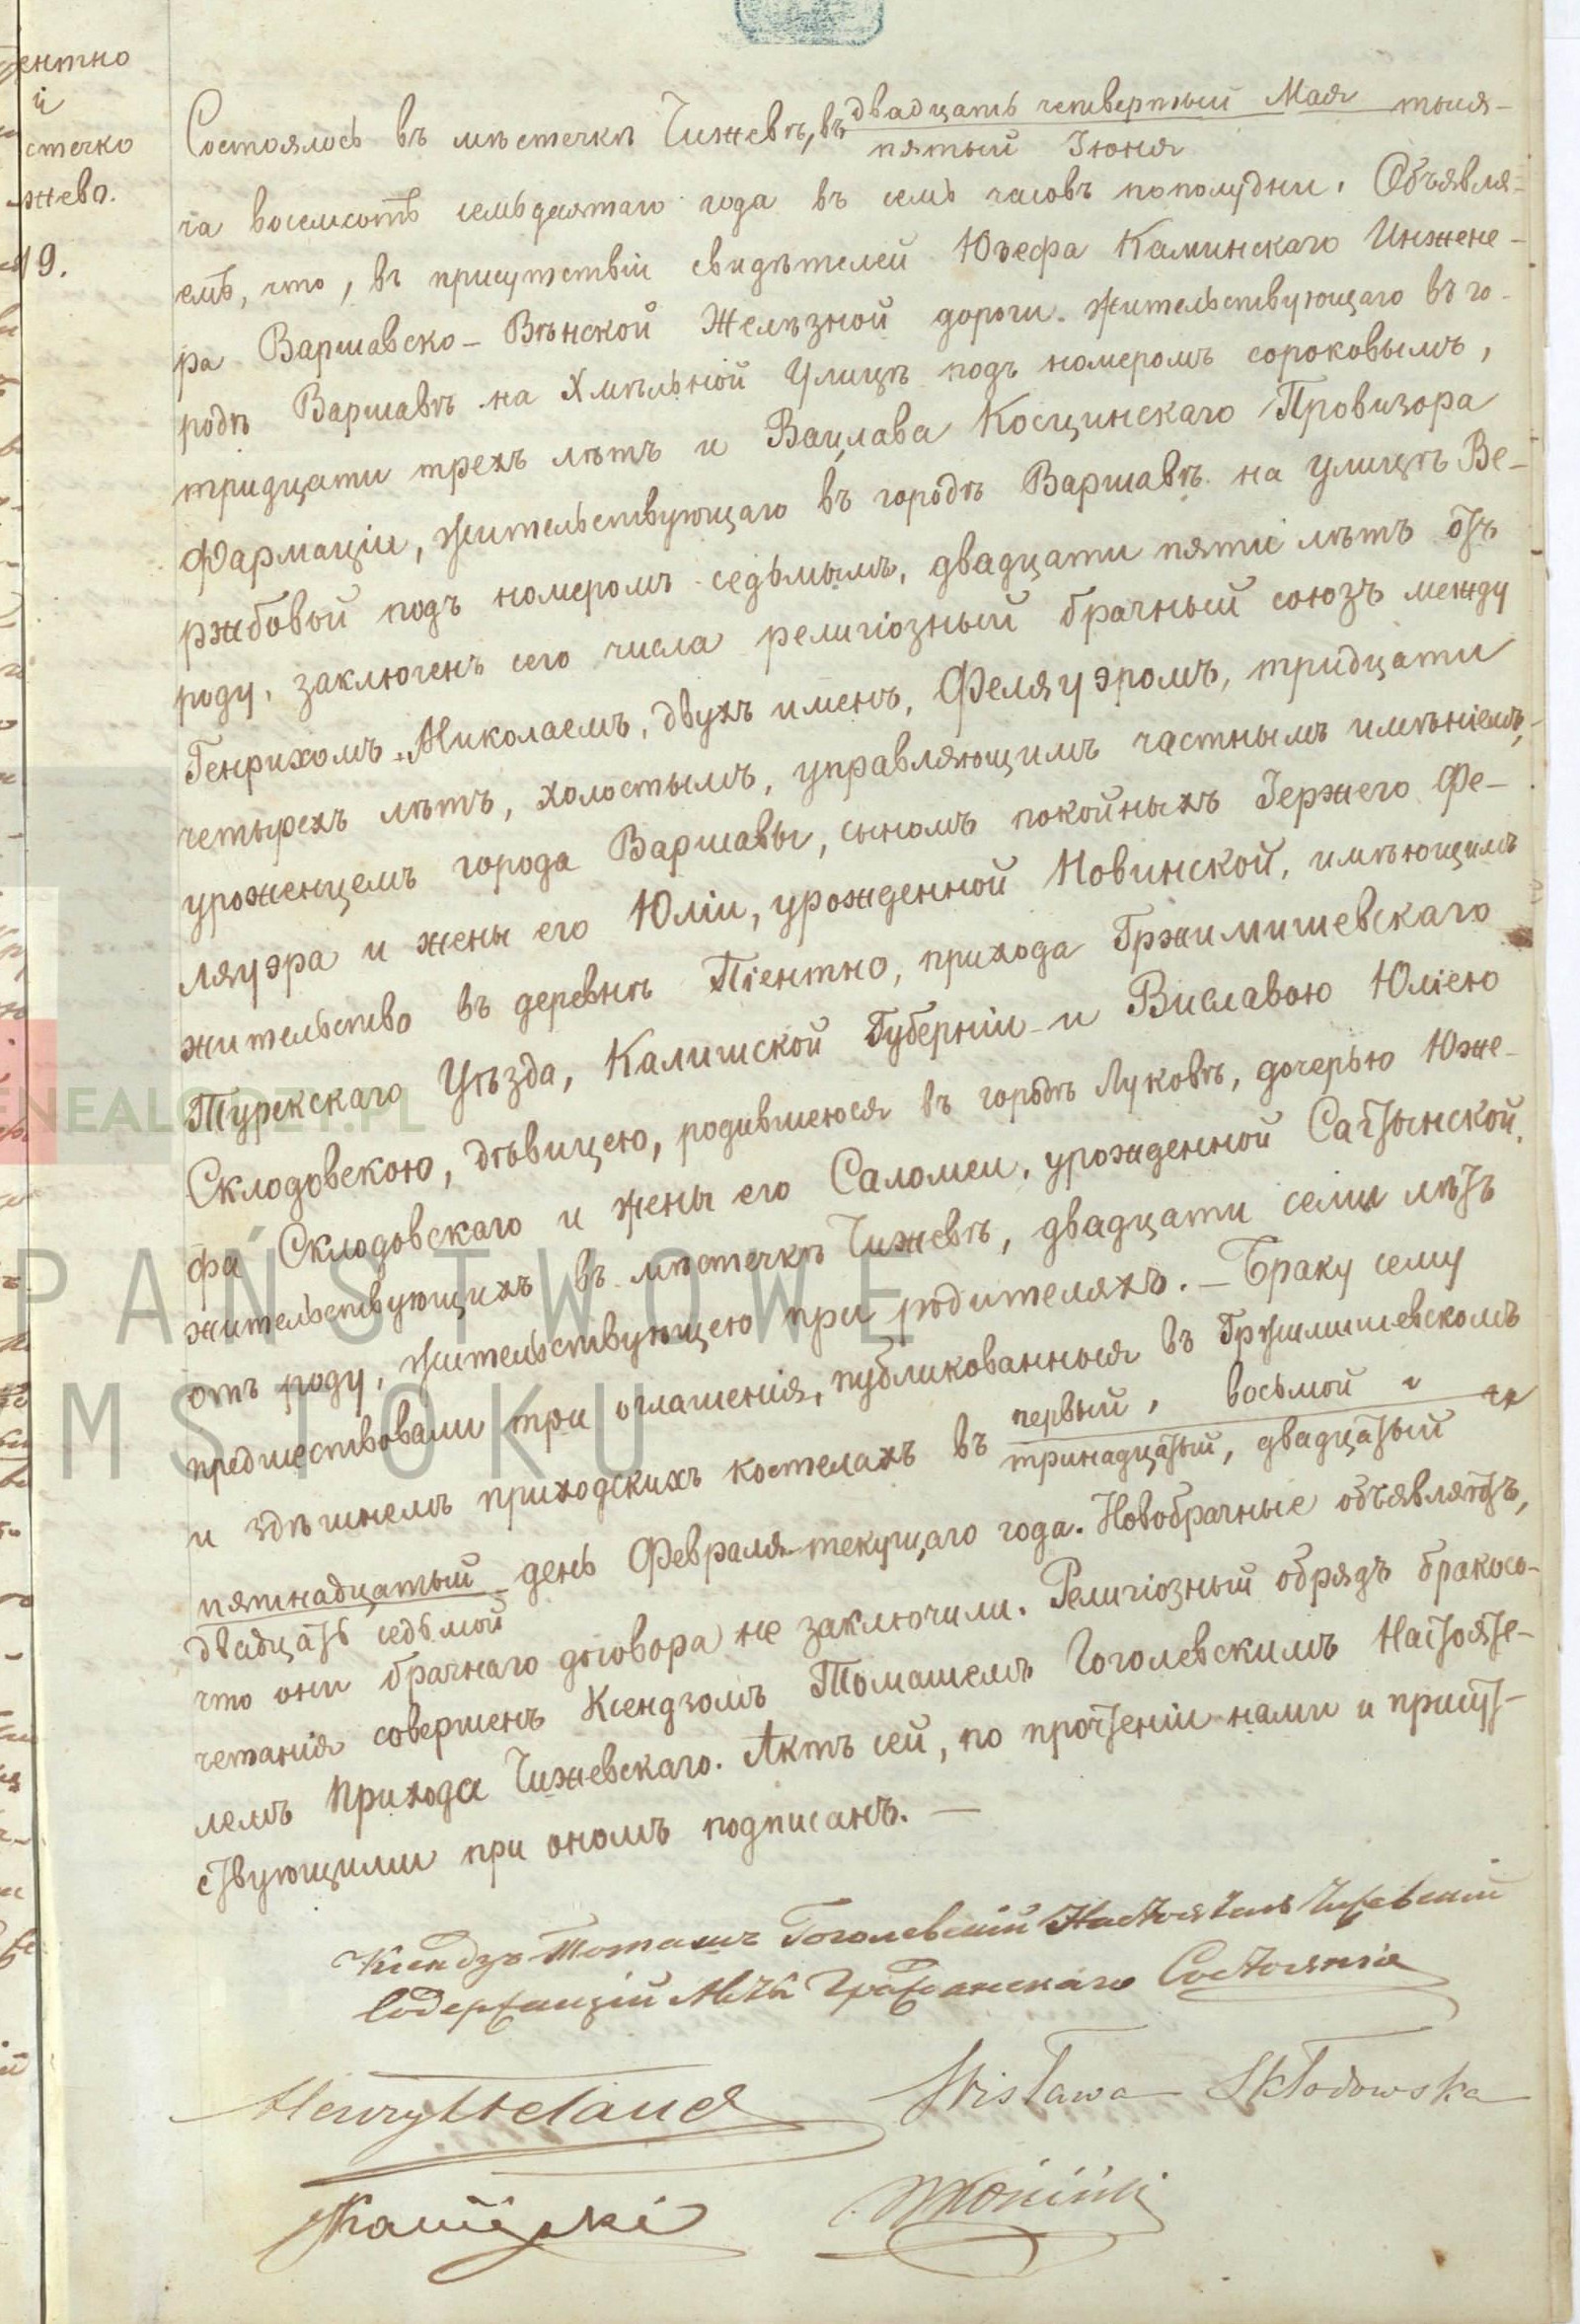 ентно
и
стечко
жево.
19.
Состоялось въ мѣстечкѣ Чижевѣ, въ двадцать четвертый Мая тыся-
пятый Іюня
ча восемьсотъ семьдесятаго года въ семь часовъ пополудни. Объявля-
емъ, что, въ присутствіи свидѣтелей Юзефа Каминскаго Инжене-
ра Варшавско-Вѣнской Желѣзной дороги жительствующаго въ го-
родѣ Варшавѣ на Хмѣльной Улицѣ подъ номеромъ сороковымъ,
тридцати трехъ лѣтъ и Вацлава Косцинскаго Провизора
Фармаціи, жительствующаго въ городѣ Варшавѣ на улицѣ Ве-
ржбовой подъ номеромъ седьмымъ, двадцати пяти лѣтъ отъ
роду, заключенъ сего числа религіозный брачный союзъ между
Генрихомъ Николаемъ, двухъ именъ, Феляуэромъ, тридцати
четырехъ лѣтъ, холостымъ, управляющимъ частнымъ имѣніемъ,
уроженцемъ города Варшавы, сыномъ покойныхъ Іержего Фе-
ляуэра и жены его Юліи, урожденной Новинской, имѣющимъ
жительство въ деревнѣ Піентно, прихода Гржимишевскаго
Турекскаго Уѣзда, Калишской Губерніи и Виславою Юліею
Склодовскою, дѣвицею, родившеюся въ городѣ Луковѣ, дочерью Юзе-
фа Склодовскаго и жены его Саломеи, урожденной Сагтынской,
жительствующихъ въ мѣстечкѣ Чижевѣ, двадцати семи лѣтъ
отъ роду, жительствующею при родителяхъ. – Браку сему
предшествовали три оглашенія, публикованныя въ Гржимишевскомъ
и здѣшнемъ приходскихъ костелахъ въ первый, восьмой и
тринадцатый, двадцатый
пятнадцатый день Февраля текущаго года. Новобрачные объявляютъ,
двадцать седьмой
что они брачнаго договора не заключили. Религіозный обрядъ бракосо-
четанія совершенъ Ксендзомъ Томашемъ Гоголевскимъ Настояте-
лемъ Прихода Чижевскаго. Актъ сей, по прочтеніи нами и присут-
ствующими при ономъ подписанъ. –
Ксендзъ Томашъ Гоголевскій Настоятель Чижевскій
Содержащій Акты Гражданскаго Состоянія
Henryk Felauer Wisława Skłodowska
JKamiński WKościński
GENEALODZY.PL
PAŃSTWOWE
MSTOKU